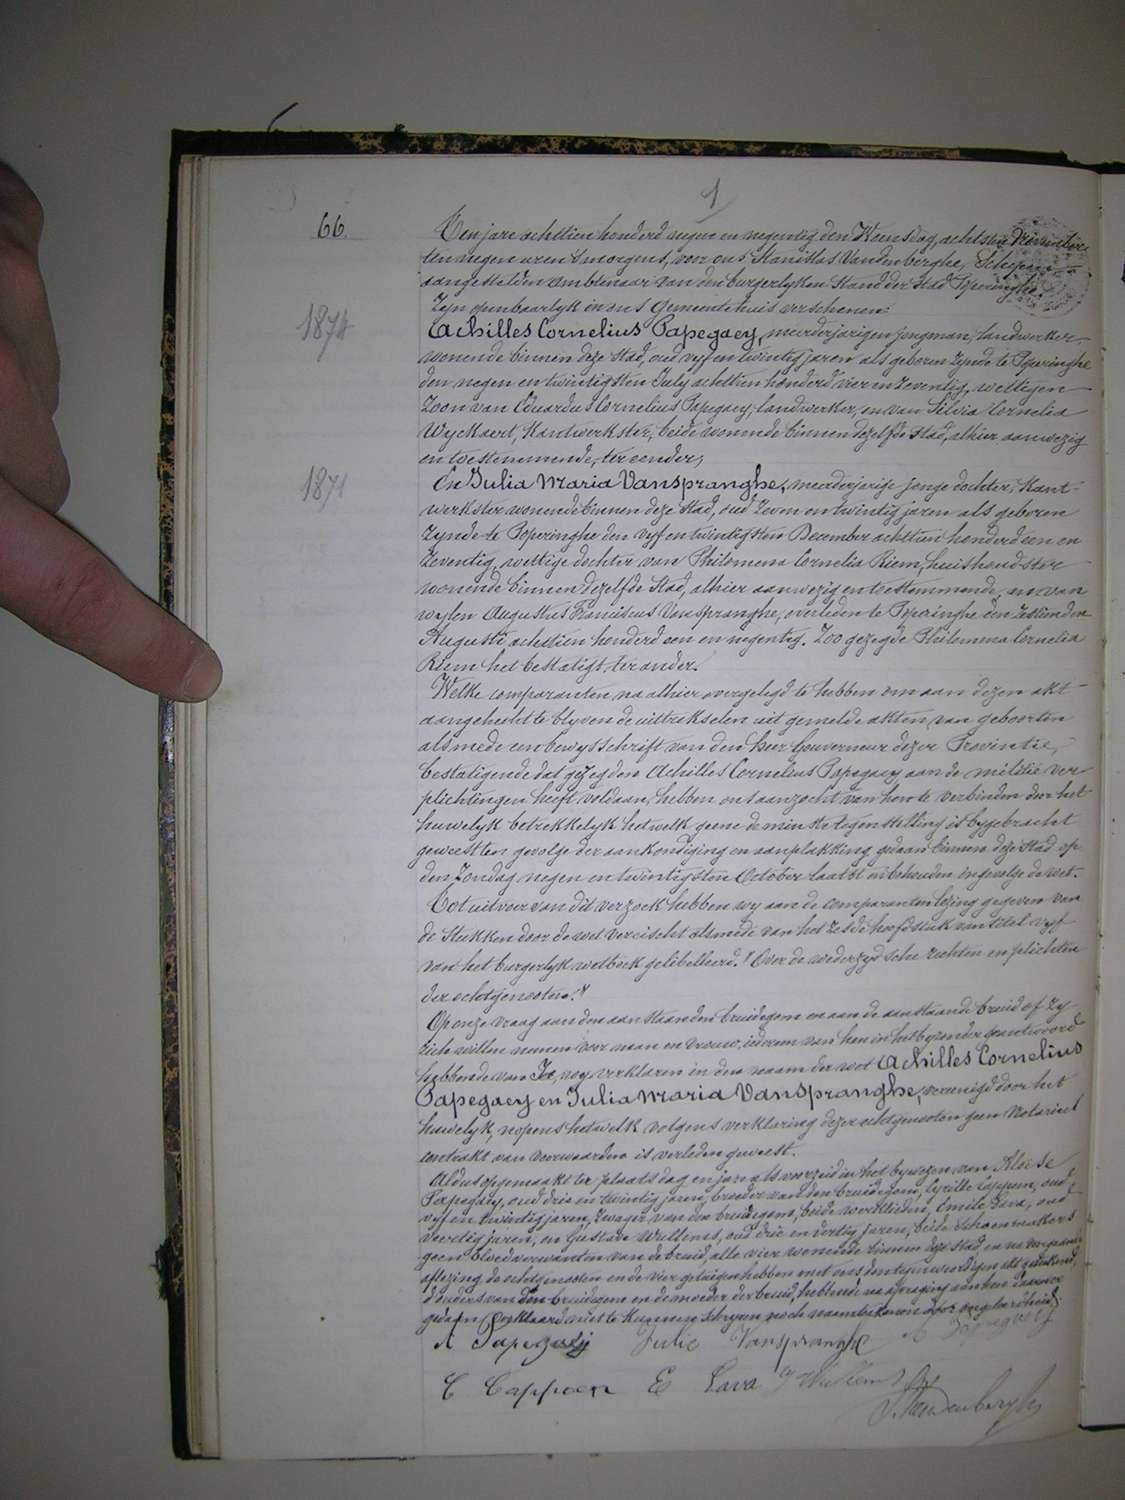 1
66.
Ten jare achttien honderd negen en negentig den Woensdag, achtsten November
ten negen uren 's morgens, voor ons Stanislas Vandenberghe, Schepen
aangestelden ambtenaar van den burgerlyken Stand der Stad Poperinghe
Zyn openbaarlyk in ons Gemeentehuis verschenen:
1874
Achilles Cornelius Papegaey, meerderjarigen jongman, landwerker,
wonende binnen deze Stad, oud vyf en twintig jaren als geboren zynde te Poperinghe
den negen en twintigsten July achttien honderd vier en zeventig, wettigen
zoon van Eduardus Cornelius Papegaey, landwerker, en van Silvia Cornelia
Wyckaert, Kantwerkster, beide wonende binnen dezelfde Stad, alhier aanwezig
en toestemmende, ter eender,
1871
En Julia Maria Vanspranghe, meerderjerige jonge dochter, Kant-
werkster wonende binnen deze Stad, oud zeven en twintig jaren als geboren
zynde te Poperinghe den vyf en twintigsten December achttien honderd een en
zeventig, wettige dochter van Philomena Cornelia Riem, huishoudster
wonende binnen dezelfde Stad, alhier aanwezig en toestemmende, en van
wylen Augustus Franciscus Vanspranghe, overleden te Poperinghe den zestienden
Augusti achttien honderd een en negentig. Zoo gezegde Philomena Cornelia
Riem het bestatigt, ter ander.
Welke comparanten, na alhier overgelegd te hebben om aan dezen akt
aangehecht te blyven de uittrekselen uit gemelde akten van geboorten
alsmede een bewysschrift van den heer Gouverneur dezer Provintie,
bestatigende dat gezegden Achilles Cornelius Papegaey aan de militie ver-
plichtingen heeft voldaan, hebben ons aanzocht van hen te verbinden door het
huwelyk betrekkelyk hetwelk geene de minste tegenstelling is bygebracht
geweest ten gevolge der aankondiging en aanplakking gedaan binnen deze Stad op
den Zondag negen en twintigsten October laatst onbehouden ingevolge de wet.
Tot uitvoer van dit verzoek hebben wy aan de comparanten lezing gegeven van
de stukken door de wet vereischt alsmede van het zesde hoofdstuk van titel vyf
van het burgerlyk wetboek gelibelleerd: "Over de wederzydsche rechten en plichten
der echtgenooten."
Op onze vraag aan den aanstaanden bruidegom en aan de aanstaande bruid of zy
zich willen nemen voor man en vrouw, iedereen van hen in het byzonder geantwoord
hebbende van Ja, wy verklaren in den naam der wet Achilles Cornelius
Papegaey en Julia Maria Vanspranghe, vereenigd door het
huwelyk, nopens hetwelk volgens verklaring dezer echtgenooten geen Notarieel
contrakt van voorwaarden is verleden geweest.
Aldus opgemaakt ter plaats dag en jare als voorzeid in het bywezen van Aloise
Papegaey, oud drie en twintig jaren, broeder van den bruidegom, Cyrille Cappoen, oud
vyf en twintig jaren, zwager van den bruidegom, beide werklieden, Emile Lava, oud
veertig jaren, en Gustave Willems, oud drie en dertig jaren, beide Schoenmakers
geen bloedverwanten van de bruid, alle vier wonende binnen deze Stad en na voorgaande
aflezing de echtgenooten en de vier getuigen hebben met ons den tegenwoordigen akt geteekend,
d'ouders van den bruidegom en de moeder der bruid, hebbende na afvraging aan hen daarover
gedaan verklaard niet te kunnen schryven noch naamteekenen door ongeleerdheid.
A Papegaey Julie Vanspranghe A Papegaey
C Cappoen E Lava G Willems
S. Vandenberghe